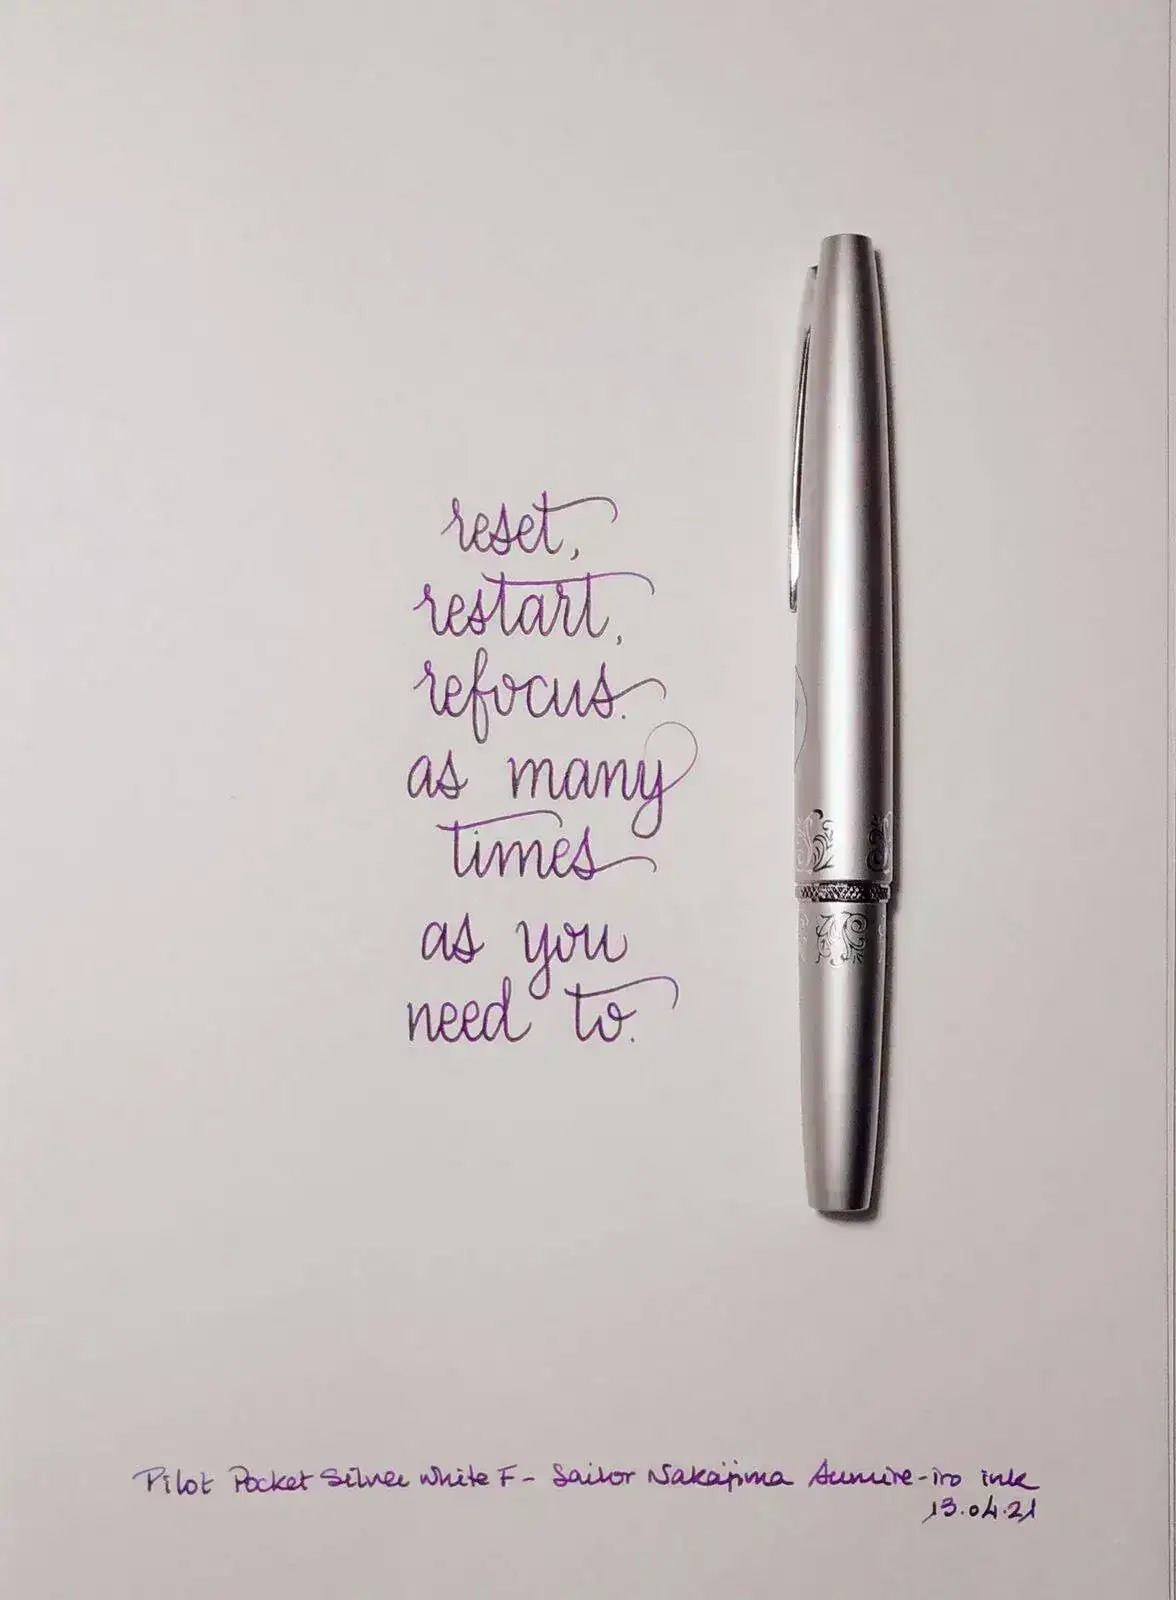 reset,
restart,
refocus.
as many
times
as you
need to.
Pilot Pocket Silver White F - Sailor Nakajima Sumire-iro ink
13.04.21